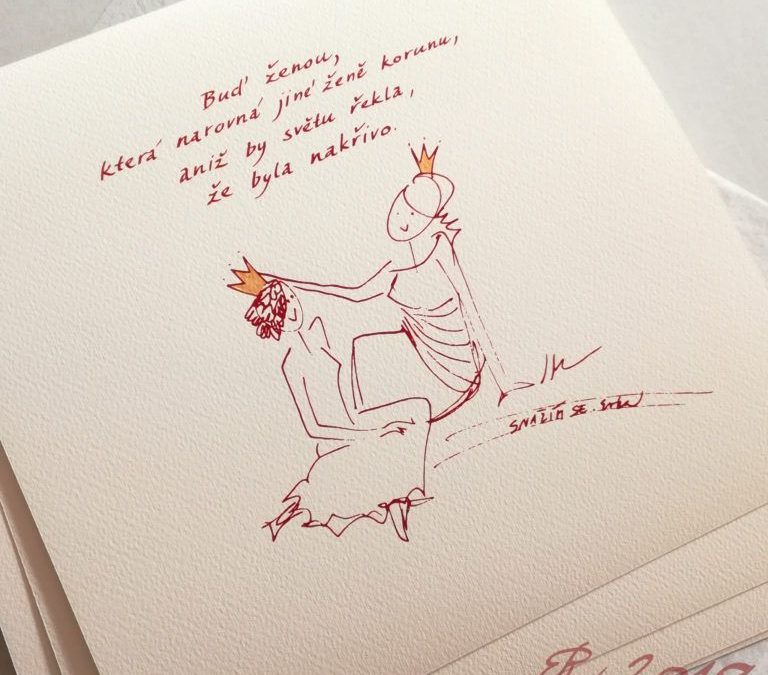 Buď ženou,
která narovná jiné ženě korunu,
aniž by světu řekla,
že byla nakřivo.
SNAŽÍM SE.